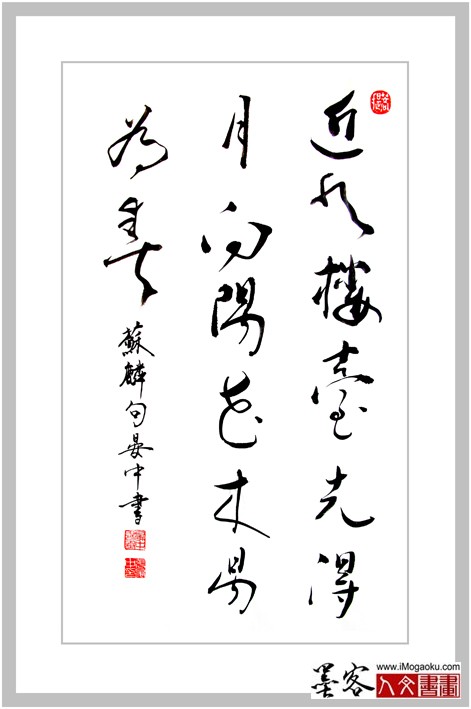 近水樓臺先得
月向陽花木易
為春
蘇麟句晏中書
www.iMogaoku.com
墨客人文書畫